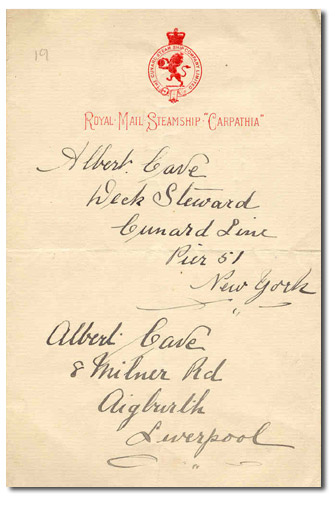 19
THE CUNARD STEAM SHIP COMPANY LIMITED
ROYAL MAIL STEAMSHIP "CARPATHIA"
Albert Cave
Deck Steward
Cunard Line
Pier 51
New York
"
Albert Cave
8 Milner Rd
Aigburth
Liverpool
"